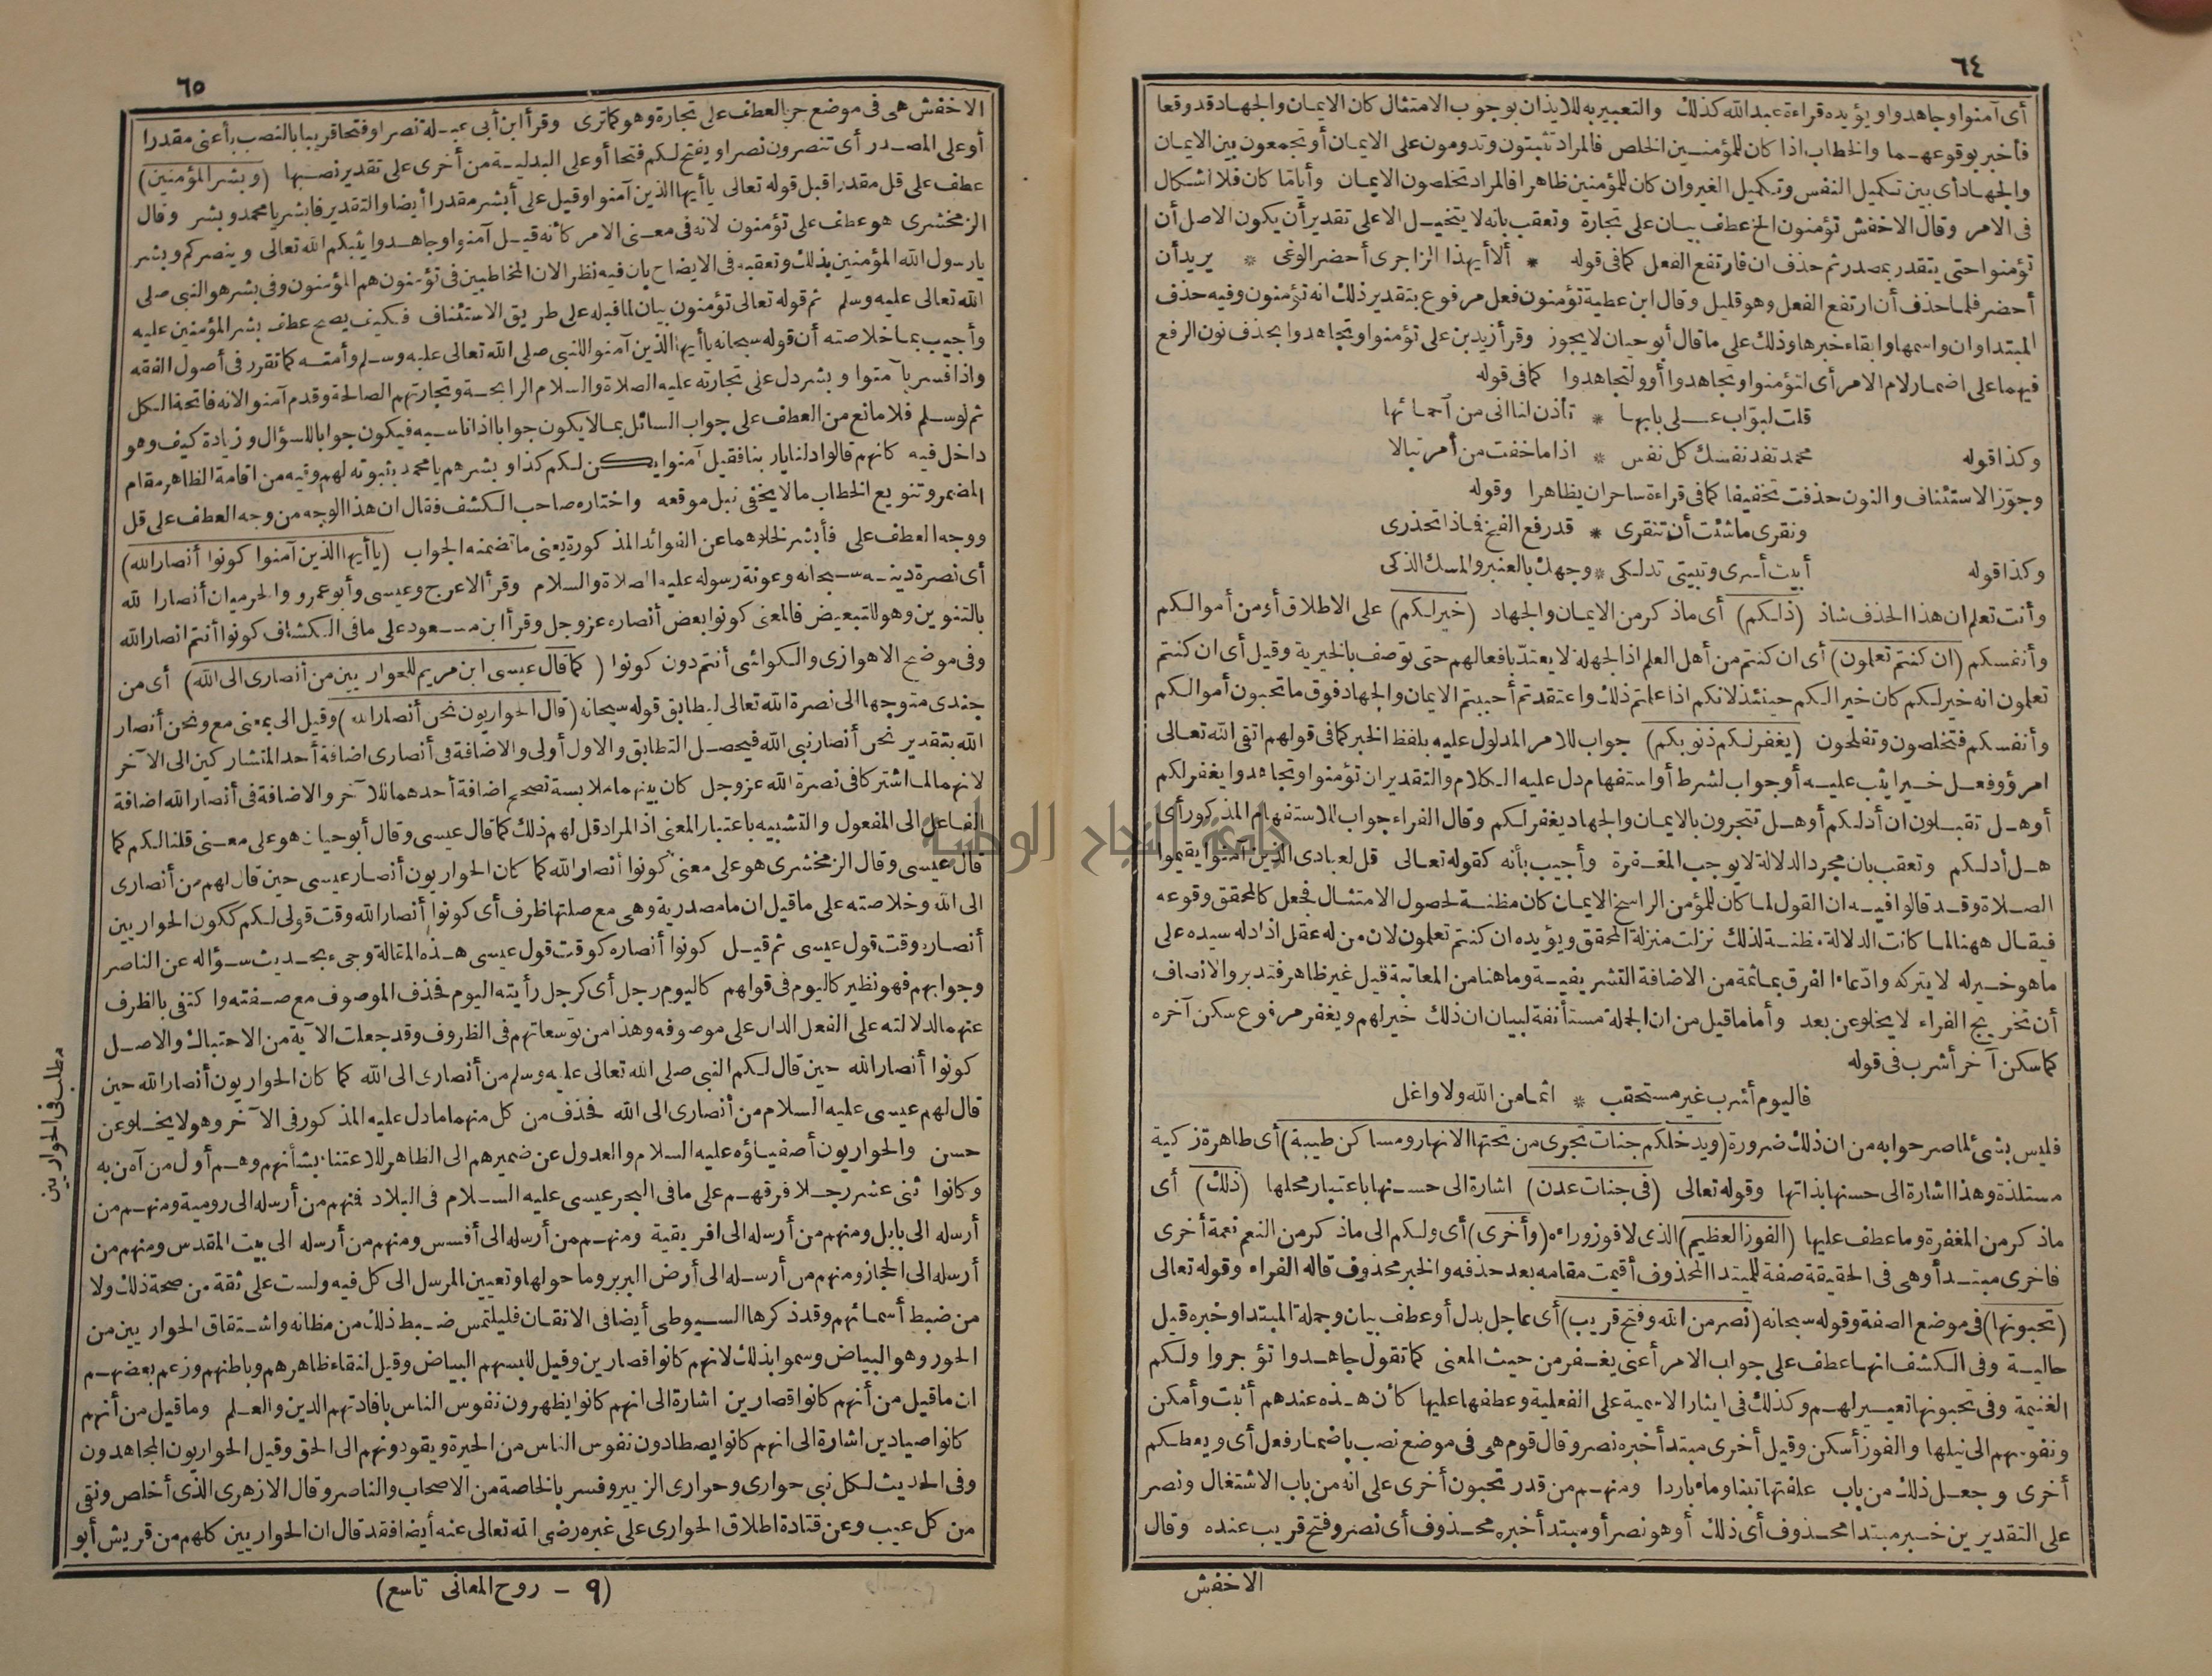 ٦٤
أى آمنوا وجاهدوا ويؤيده قراءة عبد الله كذلك والتعبير به للايذان بوجوب الامتثال كان الايمان والجهاد قد وقعا
فأخبر بوقوعهما والخطاب اذا كان للمؤمنين الخلص فالمراد تثبتون وتدومون على الايمان أو تجمعون بين الايمان
والجهاد أى بين تكميل النفس وتكميل الغير وان كان للمؤمنين ظاهرا فالمراد تخلصون الايمان وأياما كان فلا اشكال
فى الامر وقال الاخفش تؤمنون الخ عطف بيان على تجارة وتعقب بانه لا يتخيل الا على تقدير أن يكون الاصل أن
تؤمنوا حتى يتقدر بمصدر ثم حذف ان فارتفع الفعل كما فى قوله * ألا أيهذا الزاجرى أحضر الوغى * يريد أن
أحضر فلما حذف أن ارتفع الفعل وهو قليل وقال ابن عطية تؤمنون فعل مرفوع بتقدير ذلك انه تؤمنون وفيه حذف
المبتدا وان واسمها وابقاء خبرها وذلك على ما قال أبو حيان لا يجوز وقرأ زيد بن على تؤمنوا وتجاهدوا بحذف نون الرفع
فيهما على اضمار لام الامر أى لتؤمنوا وتجاهدوا أو ولتجاهدوا كما فى قوله
قلت لبوّاب عـلى بابها * تأذن لنا انى من أحمائها
وكذا قوله محمد تفد نفسك كل نفس * اذا ما خفت من أمر تبالا
وجوّز الاستئناف والنون حذفت تخفيفا كما فى قراءة ساحران يظاهرا وقوله
ونقرى ما شئت أن تنقرى * قد رفع الفخ فماذا تحذرى
وكذا قوله أبيت أسرى وتبيتى تدلكى * وجهك بالعنبر والمسك الذكى
وأنت تعلم ان هذا الحذف شاذ (ذلكم) أى ما ذكر من الايمان والجهاد (خير لكم) على الاطلاق أو من أموالكم
وأنفسكم (ان كنتم تعلمون) أى ان كنتم من أهل العلم اذ الجهلة لا يعتدّ بافعالهم حتى توصف بالخيرية وقيل أى ان كنتم
تعلمون انه خير لكم كان خيرا لكم حينئذ لانكم اذا علمتم ذلك واعتقدتم أحببتم الايمان والجهاد فوق ما تحبون أموالكم
وأنفسكم فتخلصون وتفلحون (يغفر لكم ذنوبكم) جواب للامر المدلول عليه بلفظ الخبر كما فى قولهم اتقى الله تعالى
امرؤ وفعل خيرا يثب عليه أو جواب لشرط أو استفهام دل عليه الكلام والتقدير ان تؤمنوا وتجاهدوا يغفر لكم
أو هل تقبلون ان أدلكم أو هل تتجرون بالايمان والجهاد يغفر لكم وقال الفراء جواب للاستفهام المذكور أى
هل أدلكم وتعقب بان مجرد الدلالة لا يوجب المغفرة وأجيب بأنه كقوله تعالى قل لعبادى الذين آمنوا يقيموا
الصلاة وقد قالوا فيه ان القول لما كان للمؤمن الراسخ الايمان كان مظنة لحصول الامتثال فجعل كالمحقق وقوعه
فيقال ههنا لما كانت الدلالة مظنة لذلك نزلت منزلة المحقق ويؤيده ان كنتم تعلمون لان من له عقل اذا دله سيده على
ما هو خير له لا يتركه وادّعاء الفرق بما ثمة من الاضافة التشريفية وما هنا من المعاتبة قيل غير ظاهر فتدبر والانصاف
أن تخريج الفراء لا يخلو عن بعد وأما ما قيل من ان الجملة مستأنفة لبيان ان ذلك خير لهم ويغفر مرفوع سكن آخره
كما سكن آخر أشرب فى قوله
فاليوم أشرب غير مستحقب * اثما من الله ولا واغل
فليس بشئ لما صرحوا به من ان ذلك ضرورة (ويدخلكم جنات تجرى من تحتها الانهار ومساكن طيبة) أى طاهرة زكية
مستلذة وهذا اشارة الى حسنها بذاتها وقوله تعالى (فى جنات عدن) اشارة الى حسنها باعتبار محلها (ذلك) أى
ما ذكر من المغفرة وما عطف عليها (الفوز العظيم) الذى لا فوز وراءه (وأخرى) أى ولكم الى ما ذكر من النعم نعمة أخرى
فاخرى مبتدأ وهى فى الحقيقة صفة للمبتدا المحذوف أقيمت مقامه بعد حذفه والخبر محذوف قاله الفراء وقوله تعالى
(تحبونها) فى موضع الصفة وقوله سبحانه (نصر من الله وفتح قريب) أى عاجل بدل أو عطف بيان وجملة المبتدا وخبره قيل
حالية وفى الكشف انها عطف على جواب الامر أعنى يغفر من حيث المعنى كما تقول جاهدوا تؤجروا ولكم
الغنيمة وفى تحبونها تعيير لهم وكذلك فى ايثار الاسمية على الفعلية وعطفها عليها كأن هذه عندهم أثبت وأمكن
ونفوسهم الى نيلها والفوز أسكن وقيل أخرى مبتدأ خبره نصر وقال قوم هى فى موضع نصب باضمار فعل أى ويعطكم
أخرى وجعل ذلك من باب علفتها تبنا وماء باردا ومنهم من قدر تحبون أخرى على انه من باب الاشتغال ونصر
على التقديرين خبر مبتدا محذوف أى ذلك أو هو نصر أو مبتدأ خبره محذوف أى نصر وفتح قريب عنده وقال
الاخفش
٦٥
الاخفش هى فى موضع جر بالعطف على تجارة وهو كما ترى وقرأ ابن أبى عبلة نصرا وفتحا قريبا بالنصب بأعنى مقدرا
أو على المصدر أى تنصرون نصرا ويفتح لكم فتحا أو على البدلية من أخرى على تقدير نصبها (وبشر المؤمنين)
عطف على قل مقدرا قبل قوله تعالى يا أيها الذين آمنوا وقيل على أبشر مقدرا أيضا والتقدير فابشر يا محمد وبشر وقال
الزمخشرى هو عطف على تؤمنون لانه فى معنى الامر كأنه قيل آمنوا وجاهدوا يثبكم الله تعالى وينصركم وبشر
يا رسول الله المؤمنين بذلك وتعقبه فى الايضاح بان فيه نظر الان المخاطبين فى تؤمنون هم المؤمنون وفى بشر هو النبى صلى
الله تعالى عليه وسلم ثم قوله تعالى تؤمنون بيان لما قبله على طريق الاستئناف فكيف يصح عطف بشر المؤمنين عليه
وأجيب بما خلاصته أن قوله سبحانه يا أيها الذين آمنوا للنبى صلى الله تعالى عليه وسلم وأمته كما تقرر فى أصول الفقه
واذا فسر بآمنوا وبشر دل على تجارته عليه الصلاة والسلام الرابحة وتجارتهم الصالحة وقدم آمنوا لانه فاتحة الكل
ثم لو سلم فلا مانع من العطف على جواب السائل بما لا يكون جوابا اذا ناسبه فيكون جوابا للسؤال وزيادة كيف وهو
داخل فيه كانهم قالوا دلنا يا ربنا فقيل آمنوا يكن لكم كذا وبشرهم يا محمد بثبوته لهم وفيه من اقامة الظاهر مقام
المضمر وتنويع الخطاب ما لا يخفى نبل موقعه واختاره صاحب الكشف فقال ان هذا الوجه من وجه العطف على قل
ووجه العطف على فأبشر لخلوهما عن الفوائد المذكورة يعنى ما تضمنه الجواب (يا أيها الذين آمنوا كونوا أنصار الله)
أى نصرة دينه سبحانه وعونة رسوله عليه الصلاة والسلام وقرأ الاعرج وعيسى وأبو عمرو والحرميان أنصارا لله
بالتنوين وهو للتبعيض فالمعنى كونوا بعض أنصاره عز وجل وقرأ ابن مسعود على ما فى الكشاف كونوا أنتم انصار الله
وفى موضح الاهوازى والكواشى أنتم دون كونوا (كما قال عيسى ابن مريم للحواريين من أنصارى الى الله) أى من
جندى متوجها الى نصرة الله تعالى ليطابق قوله سبحانه (قال الحواريون نحن أنصار الله) وقيل الى بمعنى مع ونحن أنصار
الله بتقدير نحن أنصار نبى الله فيحصل التطابق والاول أولى والاضافة فى أنصارى اضافة أحد المتشاركين الى الآخر
لانهما لما اشتركا فى نصرة الله عز وجل كان بينهما ملابسة تصحح اضافة أحدهما للآخر والاضافة فى أنصار الله اضافة
الفاعل الى المفعول والتشبيه باعتبار المعنى اذ المراد قل لهم ذلك كما قال عيسى وقال أبو حيان هو على معنى قلنا لكم كما
قال عيسى وقال الزمخشرى هو على معنى كونوا أنصار الله كما كان الحواريون أنصار عيسى حين قال لهم من أنصارى
الى الله وخلاصته على ما قيل ان ما مصدرية وهى مع صلتها ظرف أى كونوا أنصار الله وقت قولى لكم ككون الحواريين
أنصاره وقت قول عيسى ثم قيل كونوا أنصاره كوقت قول عيسى هذه المقالة وجىء بحديث سؤاله عن الناصر
وجوابهم فهو نظير كاليوم فى قولهم كاليوم رجل أى كرجل رأيته اليوم فحذف الموصوف مع صفته واكتفى بالظرف
عنهما لدلالته على الفعل الدال على موصوفه وهذا من توسعاتهم فى الظروف وقد جعلت الآية من الاحتباك والاصل
كونوا أنصار الله حين قال لكم النبى صلى الله تعالى عليه وسلم من أنصارى الى الله كما كان الحواريون أنصار الله حين
قال لهم عيسى عليه السلام من أنصارى الى الله فحذف من كل منهما ما دل عليه المذكور فى الآخر وهو لا يخلو عن
حسن والحواريون أصفياؤه عليه السلام والعدول عن ضميرهم الى الظاهر للاعتناء بشأنهم وهم أول من آمن به
وكانوا اثنى عشر رجلا فرقهم على ما فى البحر عيسى عليه السلام فى البلاد فمنهم من أرسله الى رومية ومنهم من
أرسله الى بابل ومنهم من أرسله الى افريقية ومنهم من أرسله الى أفسس ومنهم من أرسله الى بيت المقدس ومنهم من
أرسله الى الحجاز ومنهم من أرسله الى أرض البربر وما حولها وتعيين المرسل الى كل فيه ولست على ثقة من صحة ذلك ولا
من ضبط أسمائهم وقد ذكرها السيوطى أيضا فى الاتقان فليلتمس ضبط ذلك من مظانه واشتقاق الحواريين من
الحور وهو البياض وسموا بذلك لانهم كانوا قصارين وقيل للبسهم البياض وقيل لنقاء ظاهرهم وباطنهم وزعم بعضهم
ان ما قيل من أنهم كانوا قصارين اشارة الى انهم كانوا يطهرون نفوس الناس بافادتهم الدين والعلم وما قيل من أنهم
كانوا صيادين اشارة الى انهم كانوا يصطادون نفوس الناس من الحيرة ويقودونهم الى الحق وقيل الحواريون المجاهدون
وفى الحديث لكل نبى حوارى وحوارى الزبير وفسر بالخاصة من الاصحاب والناصر وقال الازهرى الذى أخلص ونقى
من كل عيب وعن قتادة اطلاق الحوارى على غيره رضى الله تعالى عنه أيضا فقد قال ان الحواريين كلهم من قريش أبو
مطلب فى الحواريين
(٩ – روح المعانى تاسع)
جامعة النجاح الوطنية